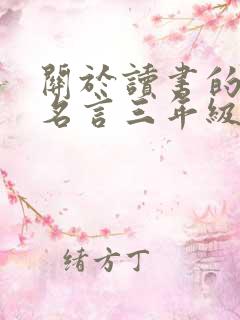 關於讀書的
名言三年級
緒方丁